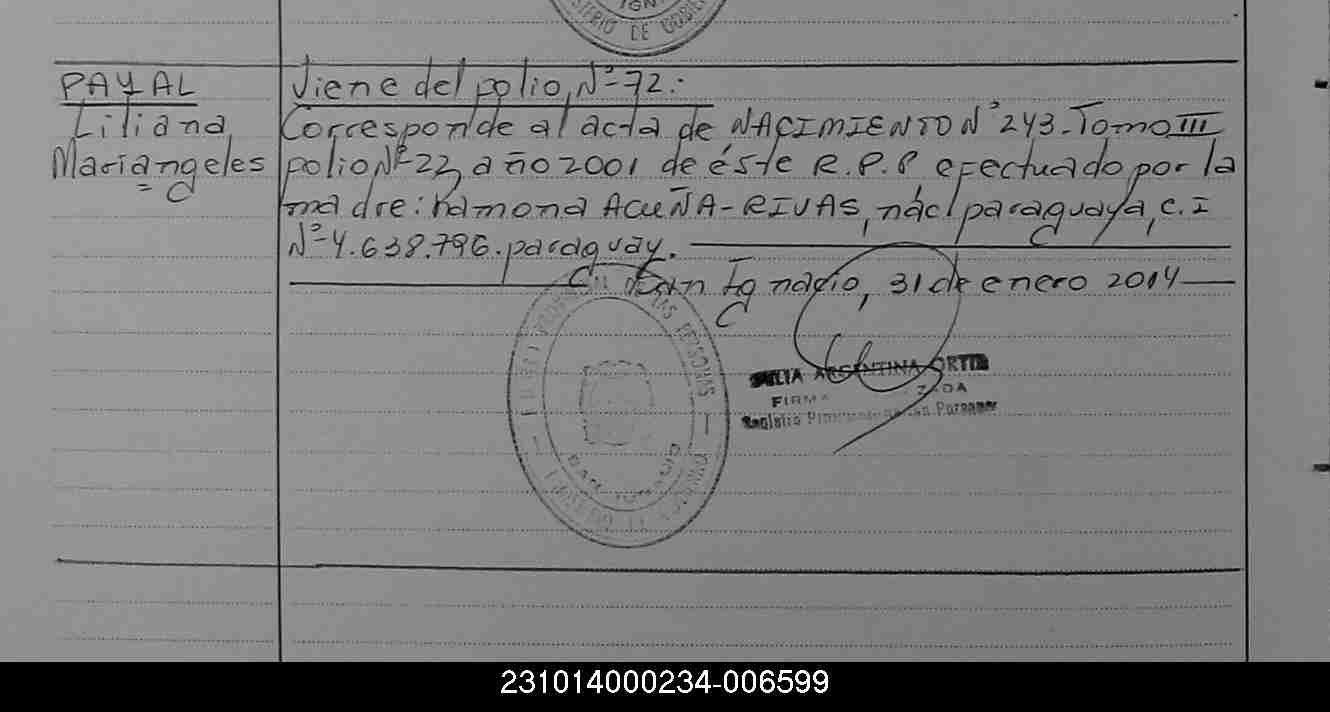 IGN
STERIO DE GOBIE
PAYAL
Liliana
Mariangeles
Viene del folio, Nº 72:
Corresponde al acta de NACIMIENTO Nº 243. Tomo III
folio Nº 22, año 2001 de éste R.P.P, efectuado por la
madre: Ramona ACUÑA-RIVAS, nácl paraguaya, C.I
Nº 4.638.796. paraguay.
San Ignacio, 31 de enero 2014
LAS PERSONAS
SAN IGNACIO
ARGENTINA ORTIZ
FIRMA
Registro
231014000234-006599